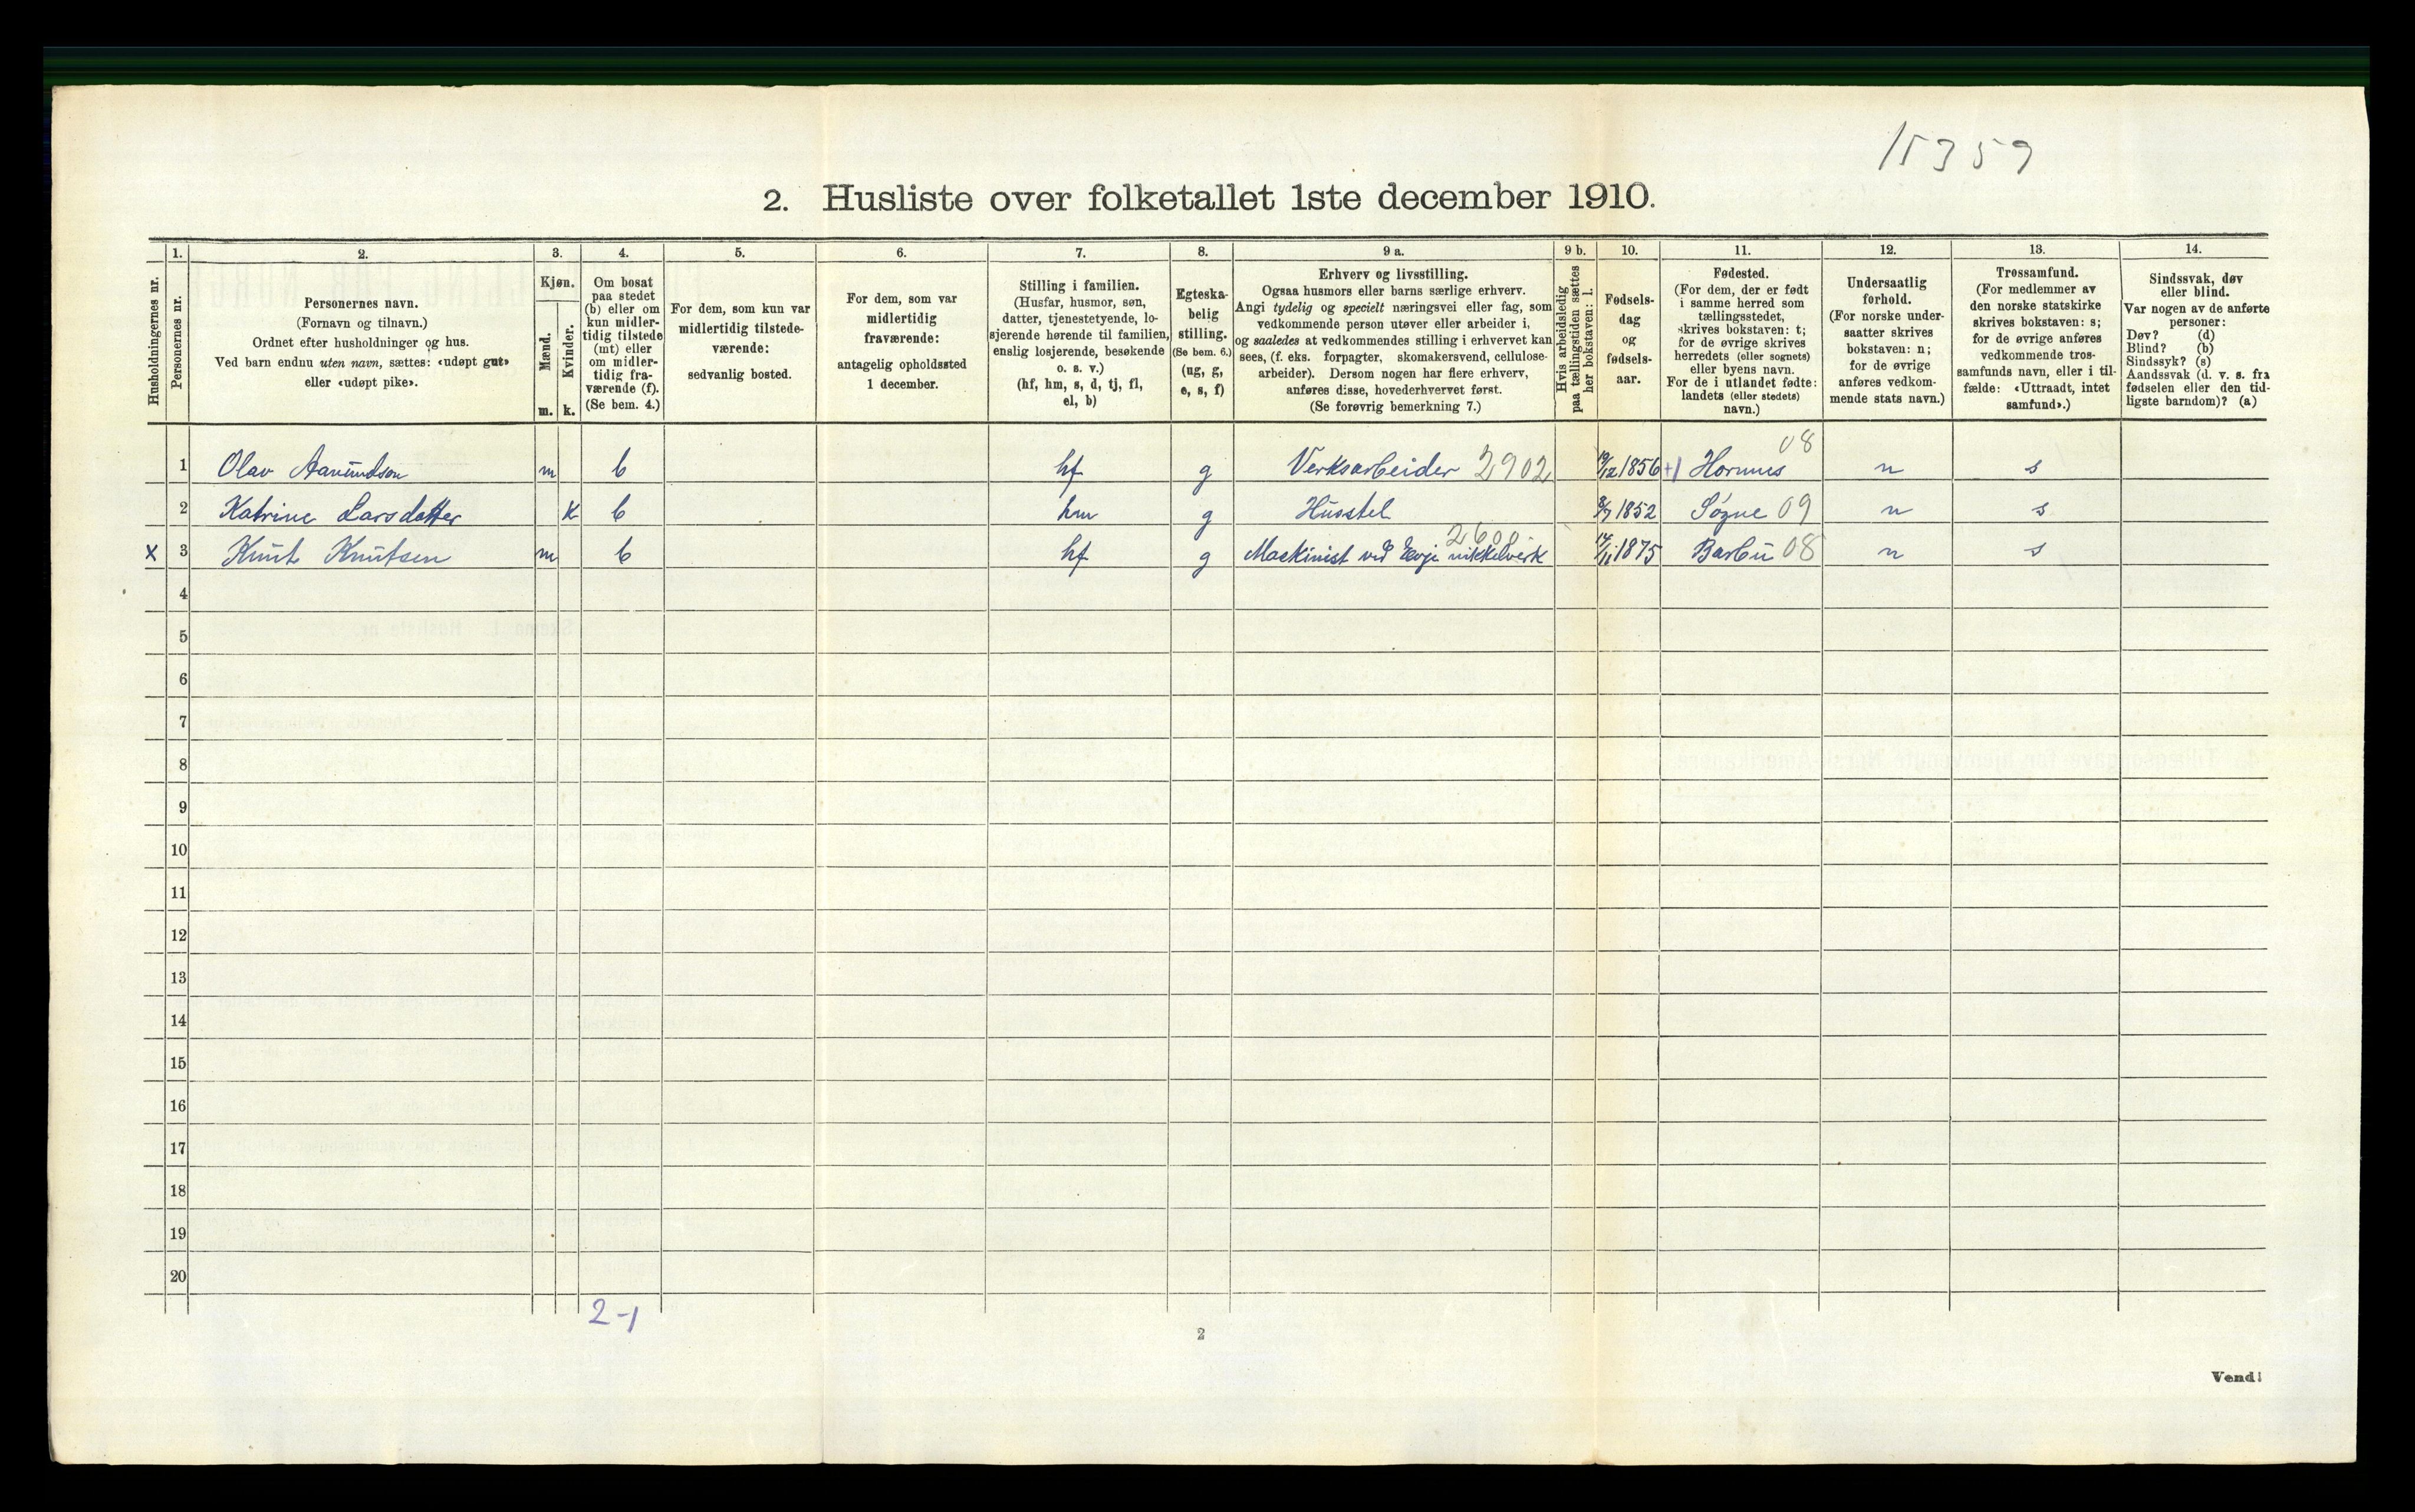 15359
2. Husliste over folketallet 1ste december 1910.
Husholdningernes nr.
1.
Personernes nr.
2.
Personernes navn.
(Fornavn og tilnavn.)
Ordnet efter husholdninger og hus.
Ved barn endnu uten navn, sættes: «udøpt gut»
eller «udøpt pike».
3.
Kjøn.
Mænd.
m.
Kvinder.
k.
4.
Om bosat
paa stedet
(b) eller om
kun midler-
tidig tilstede
(mt) eller
om midler-
tidig fra-
værende (f).
(Se bem. 4.)
5.
For dem, som kun var
midlertidig tilstede-
værende:
sedvanlig bosted.
6.
For dem, som var
midlertidig
fraværende:
antagelig opholdssted
1 december.
7.
Stilling i familien.
(Husfar, husmor, søn,
datter, tjenestetyende, lo-
sjerende hørende til familien,
enslig losjerende, besøkende
o. s. v.)
(hf, hm, s, d, tj, fl,
el, b)
8.
Egteska-
belig
stilling.
(Se bem. 6.)
(ug, g,
e, s, f)
9 a.
Erhverv og livsstilling.
Ogsaa husmors eller barns særlige erhverv.
Angi tydelig og specielt næringsvei eller fag, som
vedkommende person utøver eller arbeider i,
og saaledes at vedkommendes stilling i erhvervet kan
sees, (f. eks. forpagter, skomakersvend, cellulose-
arbeider). Dersom nogen har flere erhverv,
anføres disse, hovederhvervet først.
(Se forøvrig bemerkning 7.)
9 b.
Hvis arbeidsledig
paa tællingstiden sættes
her bokstaven: l.
10.
Fødsels-
dag
og
fødsels-
aar.
11.
Fødested.
(For dem, der er født
i samme herred som
tællingsstedet,
skrives bokstaven: t;
for de øvrige skrives
herredets (eller sognets)
eller byens navn.
For de i utlandet fødte:
landets (eller stedets)
navn.)
12.
Undersaatlig
forhold.
(For norske under-
saatter skrives
bokstaven: n;
for de øvrige
anføres vedkom-
mende stats navn.)
13.
Trossamfund.
(For medlemmer av
den norske statskirke
skrives bokstaven: s;
for de øvrige anføres
vedkommende tros-
samfunds navn, eller i til-
fælde: «Uttraadt, intet
samfund».)
14.
Sindssvak, døv
eller blind.
Var nogen av de anførte
personer:
Døv? (d)
Blind? (b)
Sindssyk? (s)
Aandssvak (d. v. s. fra
fødselen eller den tid-
ligste barndom)? (a)
1 Olav Aanundson m b hf g Verksarbeider 2902 19/12 1856 +1 Hornnes 08 n s
2 Katrine Larsdatter k b hm g Husstel 8/7 1852 Søgne 09 n s
x 3 Knut Knutsen m b hf g Maskinist ved Evje nikkelverk 2600 17/11 1875 Barbu 08 n s
4
5
6
7
8
9
10
11
12
13
14
15
16
17
18
19
20
2-1
2
Vend!